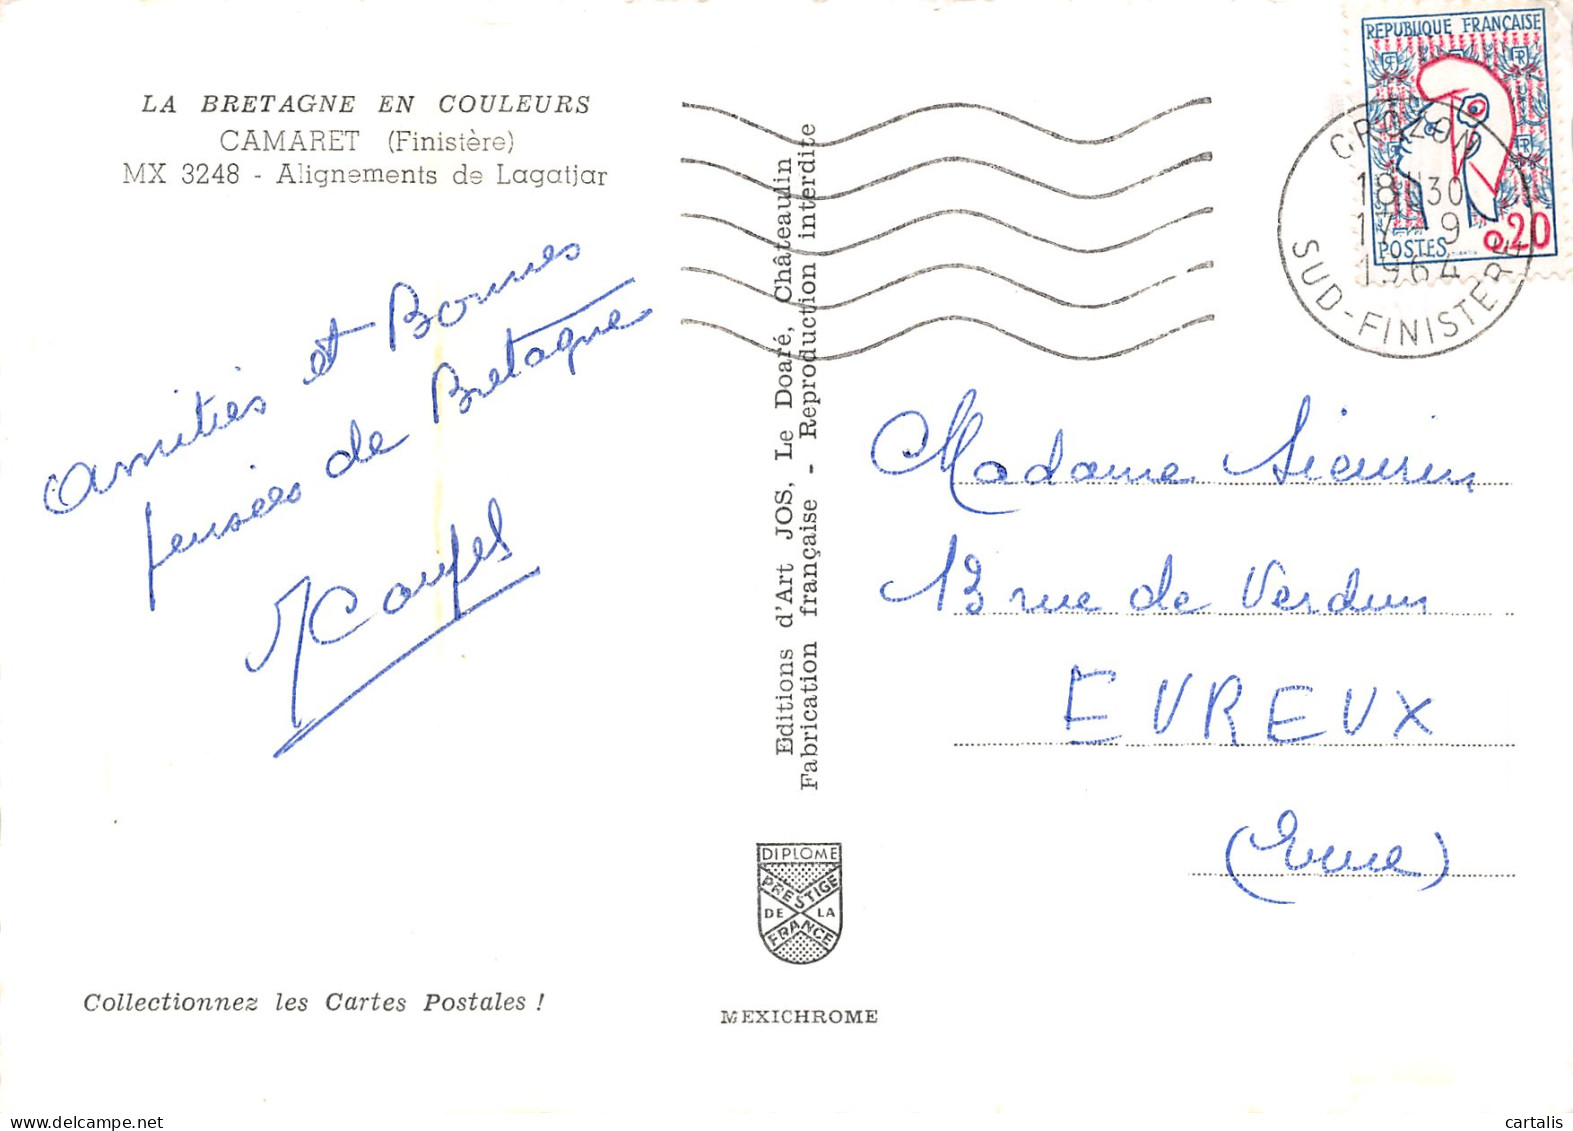 LA BRETAGNE EN COULEURS
CAMARET (Finistère)
MX 3248 - Alignements de Lagatjar
amitiés et Bonnes
pensées de Bretagne
Editions d'Art JOS, Le Doaré, Châteaulin
Fabrication française - Reproduction interdite
REPUBLIQUE FRANÇAISE
POSTES
0,20
CROZON
18H30
17-9
1964
SUD-FINISTERE
Madame
13 rue de Verdun
EVREUX
(Eure)
DIPLOME
PRESTIGE
DE LA
FRANCE
Collectionnez les Cartes Postales !
MEXICHROME
cartalis